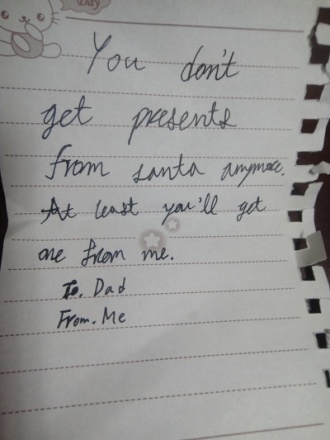 You don't
get presents
from santa anymore.
At least you'll get
one from me.
To. Dad
From. Me